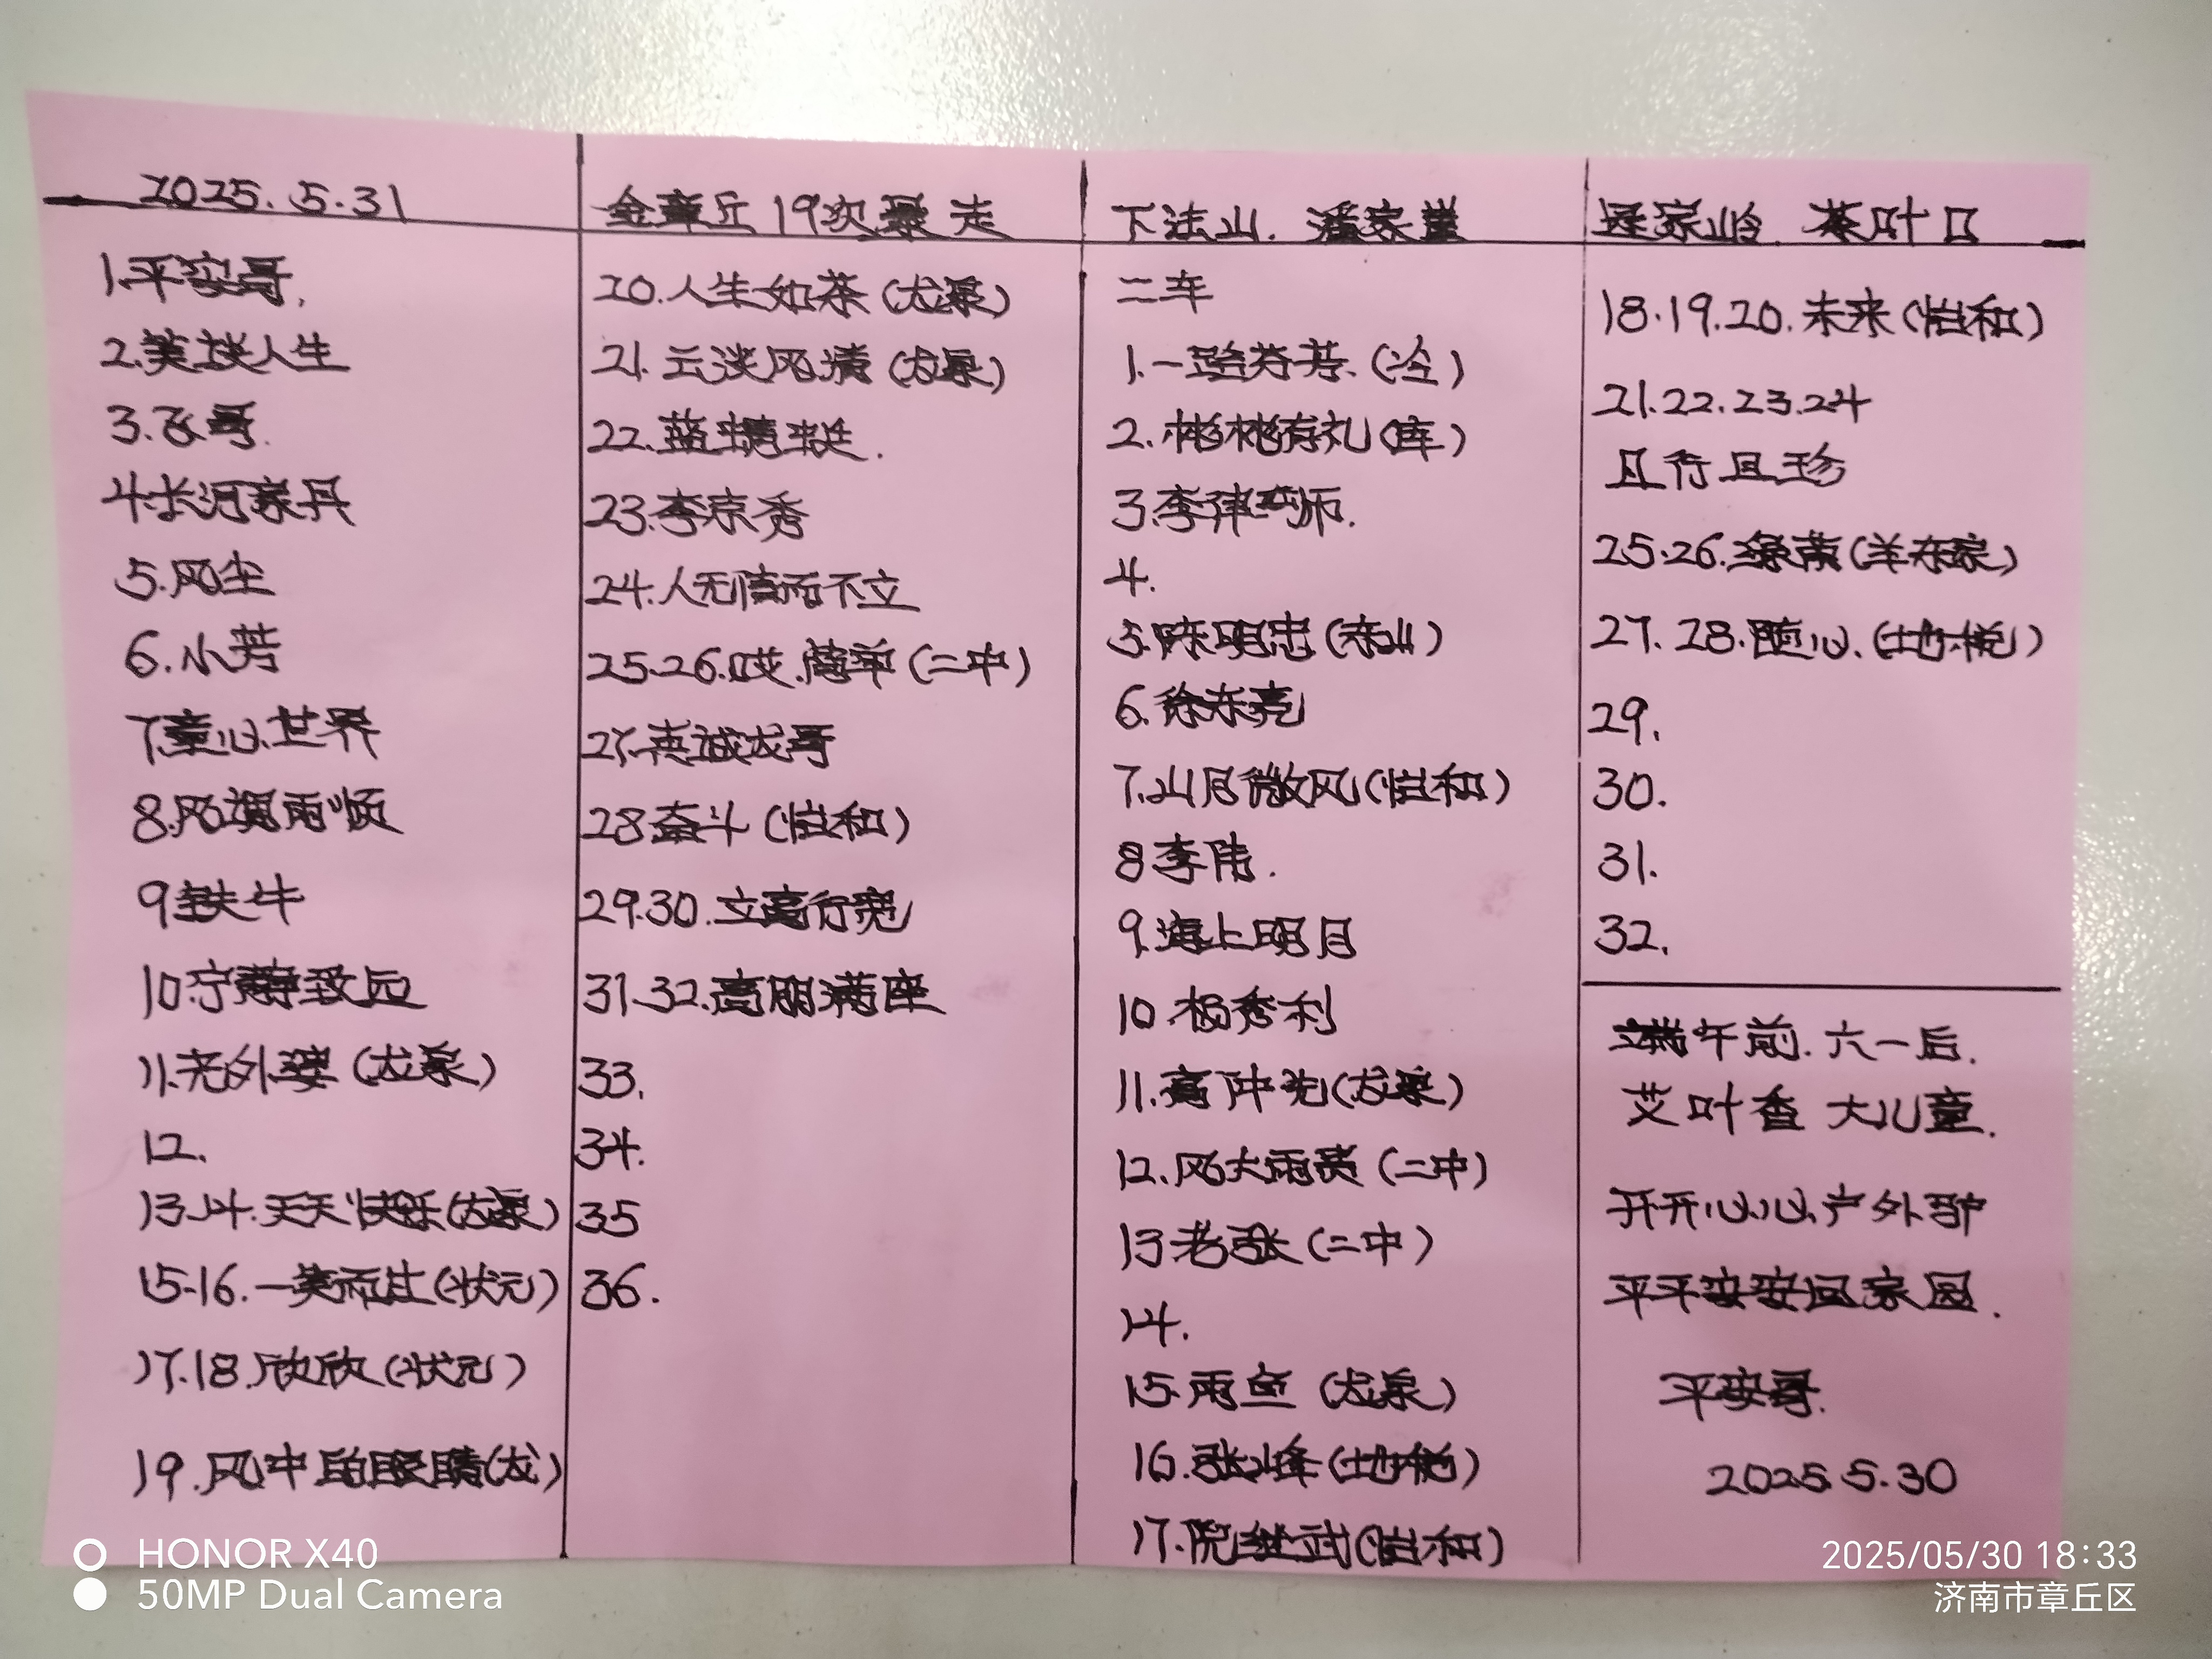 2025.5.31
1.平安哥.
2.笑谈人生
3.飞哥.
4.长河家丹
5.风尘
6.小芳
7.童心世界
8.风调雨顺
9铁牛
10.宁静致远
11.老外婆(龙泉)
12.
13.14.天天快乐(龙泉)
15-16.一笑而过(状元)
17.18.欣欣(状元)
19.风中的眼睛(龙)
全章丘19次暴走
20.人生如茶(龙泉)
21.云淡风清(龙泉)
22.蓝蜻蜓.
23.李京秀
24.人无信而不立
25.26.哎.简单(二中)
27.英诚龙哥
28奋斗(怡和)
29.30.立高行宽
31.32.高朋满座
33.
34.
35
36.
下法山.潘家崖
二车
1.一路芬芳.(冶)
2.彬彬有礼(库)
3.李律师.
4.
5.陈明忠(东山)
6.徐东亮
7.山月微风(怡和)
8李伟.
9.海上明月
10.杨秀利
11.高仲先(龙泉)
12.风大雨贵(二中)
13老张(二中)
14.
15.雨鱼(龙泉)
16.张峰(地税)
17.院继武(怡和)
逯家岭.茶叶口
18.19.20.未来(怡和)
21.22.23.24
且行且珍
25.26.绿茵(羊东家)
27.28.随心.(地税)
29.
30.
31.
32.
端午前.六一后.
艾叶香 大儿童.
开开心心户外驴
平平安安回家园.
平安哥.
2025.5.30
HONOR X40
50MP Dual Camera
2025/05/30 18:33
济南市章丘区